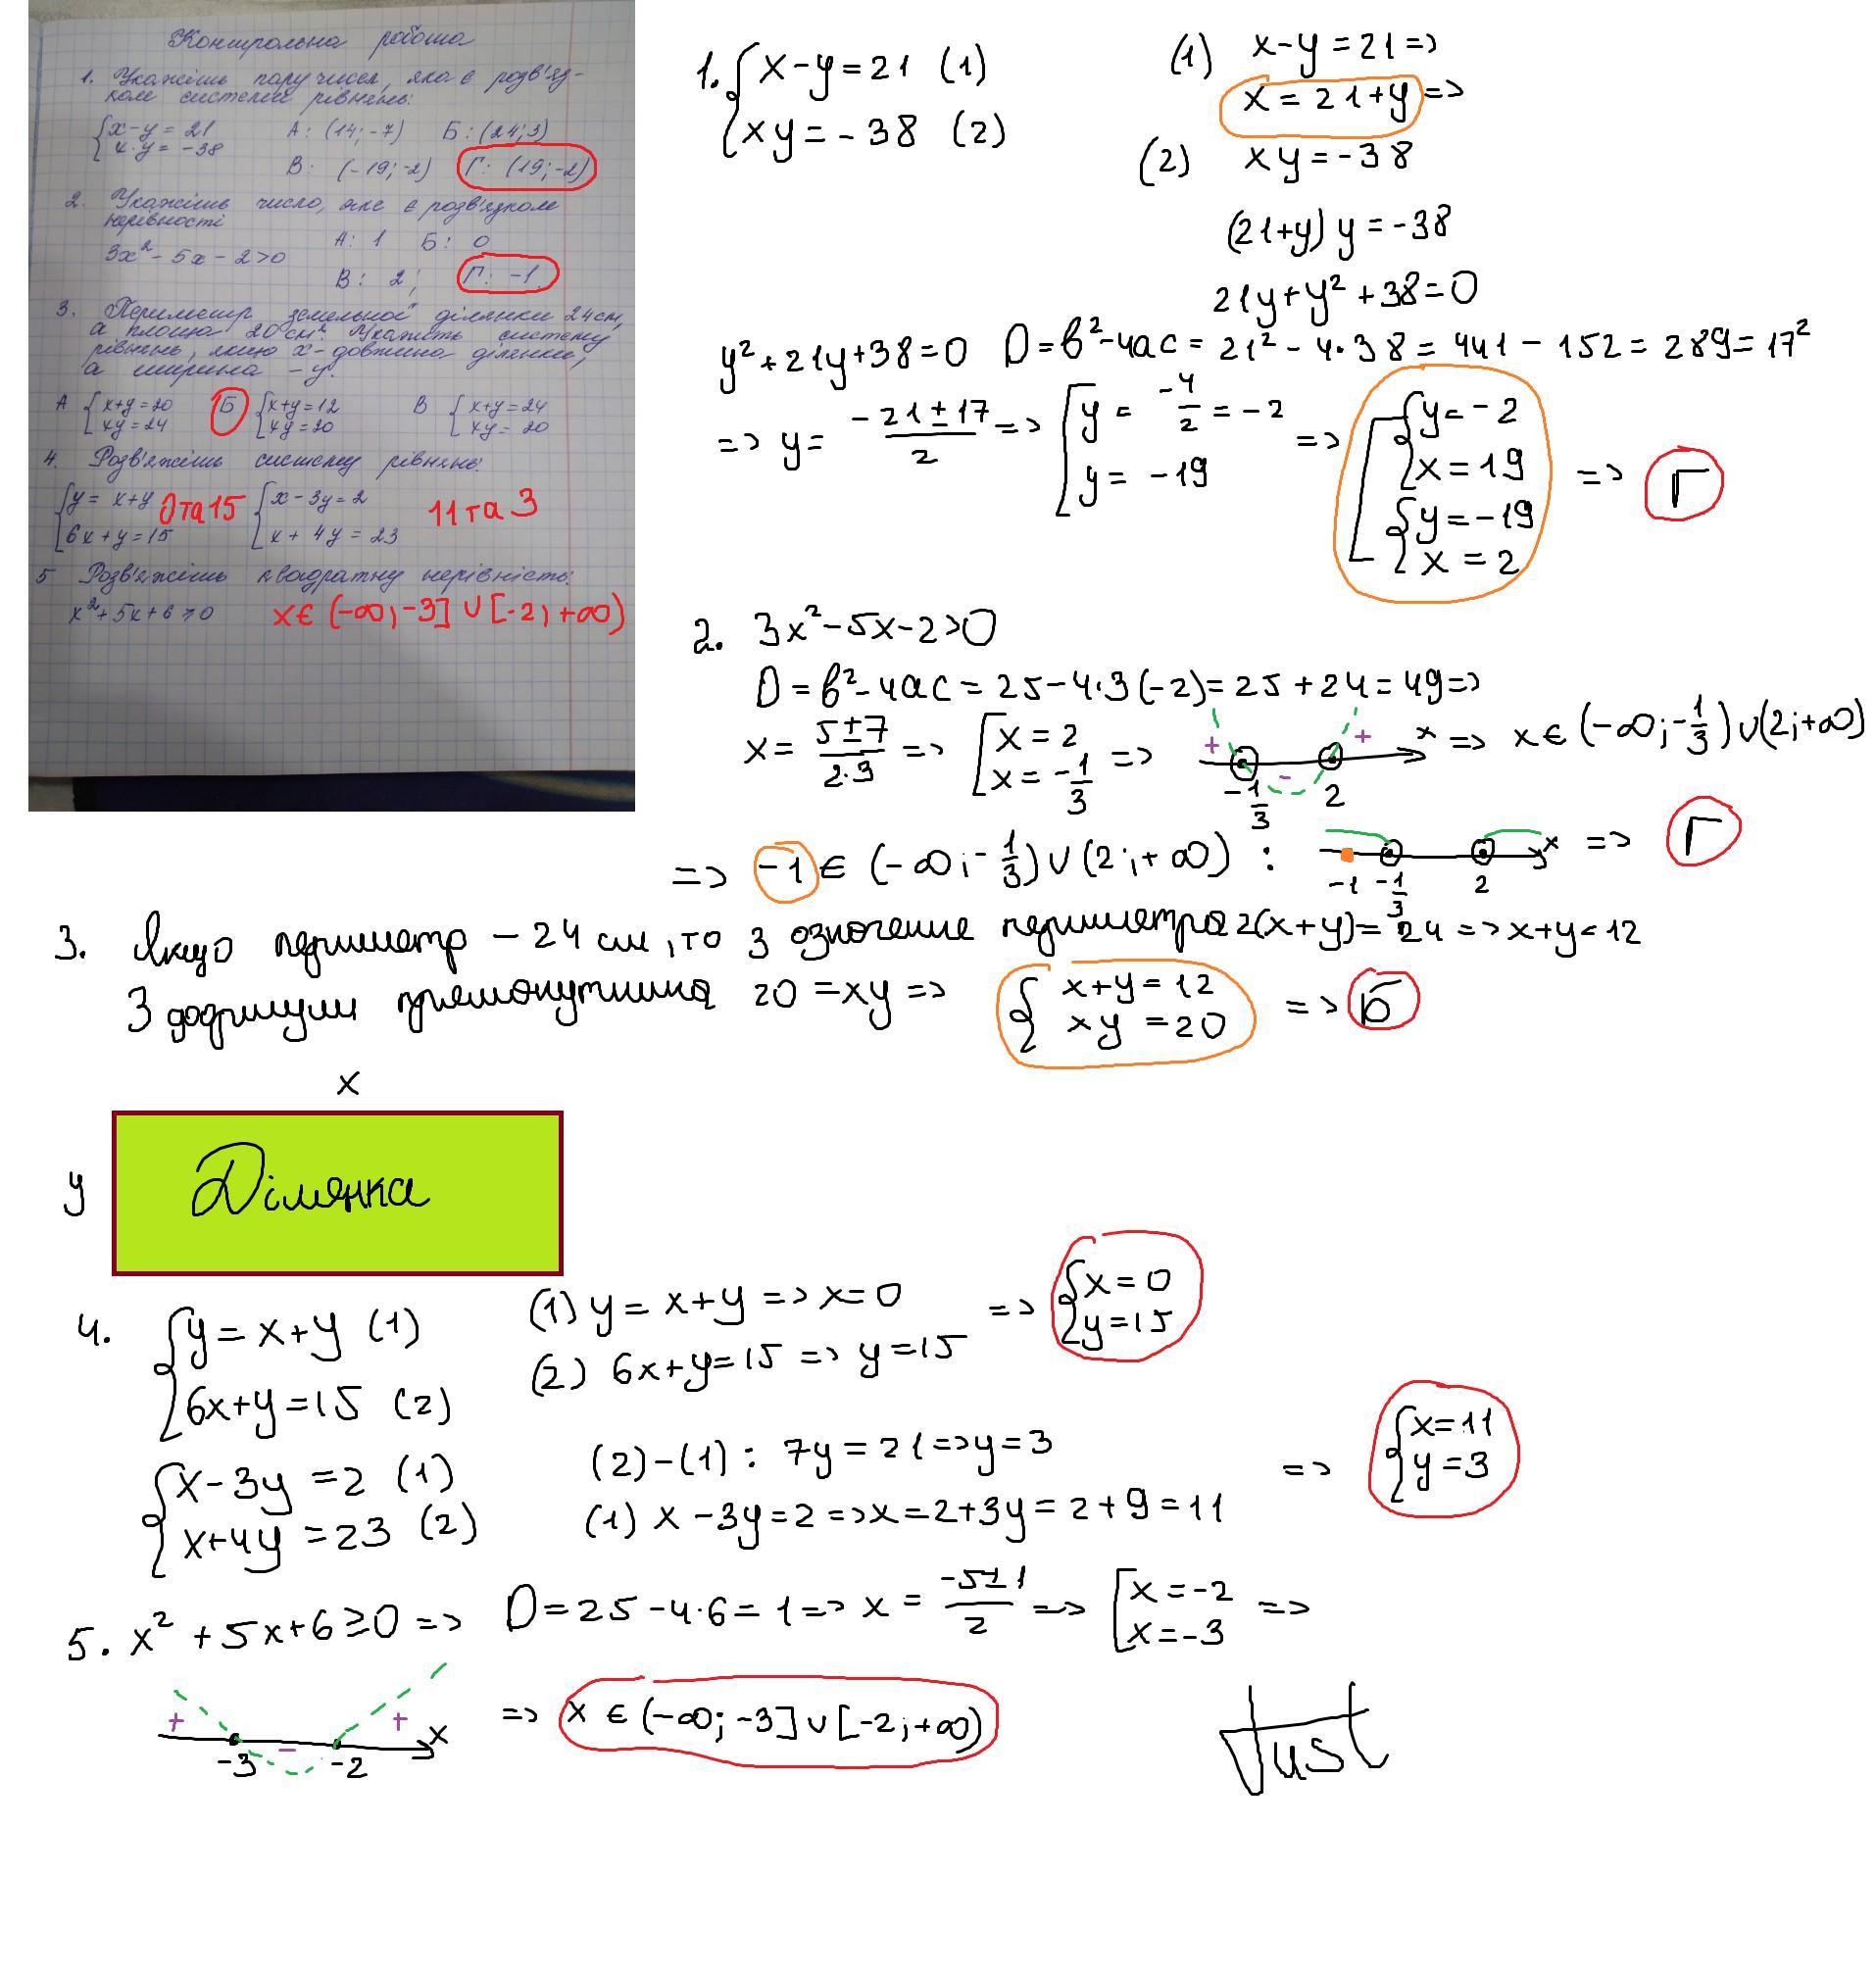 Контрольна робота
1. Укажіть пару чисел, яка є розв'яз-
ком системи рівнянь:
{x-y = 21 А: (14; -7) Б: (24; 3)
x·y = -38
В: (-19; -2) Г: (19; -2)
2. Укажіть число, яке є розв'язком
нерівності
3x² - 5x - 2 > 0 А: 1 Б: 0
В: 2; Г: -1.
3. Периметр земельної ділянки 24 см,
а площа 20 см². Укажіть систему
рівнянь, якщо x - довжина ділянки,
а ширина - y.
А {x+y = 20 Б {x+y = 12 В {x+y = 24
xy = 24 xy = 20 xy = 20
4. Розв'яжіть систему рівнянь:
{y = x+y 0 та 15 {x - 3y = 2 11 та 3
6x + y = 15 x + 4y = 23
5 Розв'яжіть квадратну нерівність:
x² + 5x + 6 ≥ 0 x ∈ (-∞; -3] ∪ [-2; +∞)
1. {x - y = 21 (1)
xy = -38 (2)
(1) x - y = 21 =>
x = 21 + y =>
(2) xy = -38
(21+y) y = -38
21y + y² + 38 = 0
y² + 21y + 38 = 0 D = b² - 4ac = 21² - 4·38 = 441 - 152 = 289 = 17²
=> y = (-21 ± 17)/2 => [y = -4/2 = -2 => [{y = -2 => Г
y = -19 x = 19
{y = -19
x = 2
2. 3x² - 5x - 2 > 0
D = b² - 4ac = 25 - 4·3(-2) = 25 + 24 = 49 =>
x = (5 ± 7)/(2·3) => [x = 2 => + - + x => x ∈ (-∞; -1/3) ∪ (2; +∞)
x = -1/3 -1/3 2
=> -1 ∈ (-∞; -1/3) ∪ (2; +∞) : x => Г
-1 -1/3 2
3. Якщо периметр - 24 см, то з означення периметра 2(x+y) = 24 => x+y = 12
З формули прямокутника 20 = xy => {x+y = 12 => Б
xy = 20
x
y Ділянка
4. {y = x+y (1) (1) y = x+y => x = 0 => {x = 0
6x+y = 15 (2) (2) 6x+y = 15 => y = 15 y = 15
{x - 3y = 2 (1) (2)-(1): 7y = 21 => y = 3 => {x = 11
x+4y = 23 (2) (1) x - 3y = 2 => x = 2+3y = 2+9 = 11 y = 3
5. x² + 5x + 6 ≥ 0 => D = 25 - 4·6 = 1 => x = (-5 ± 1)/2 => [x = -2 =>
x = -3
+ - + x => x ∈ (-∞; -3] ∪ [-2; +∞)
-3 -2
Just